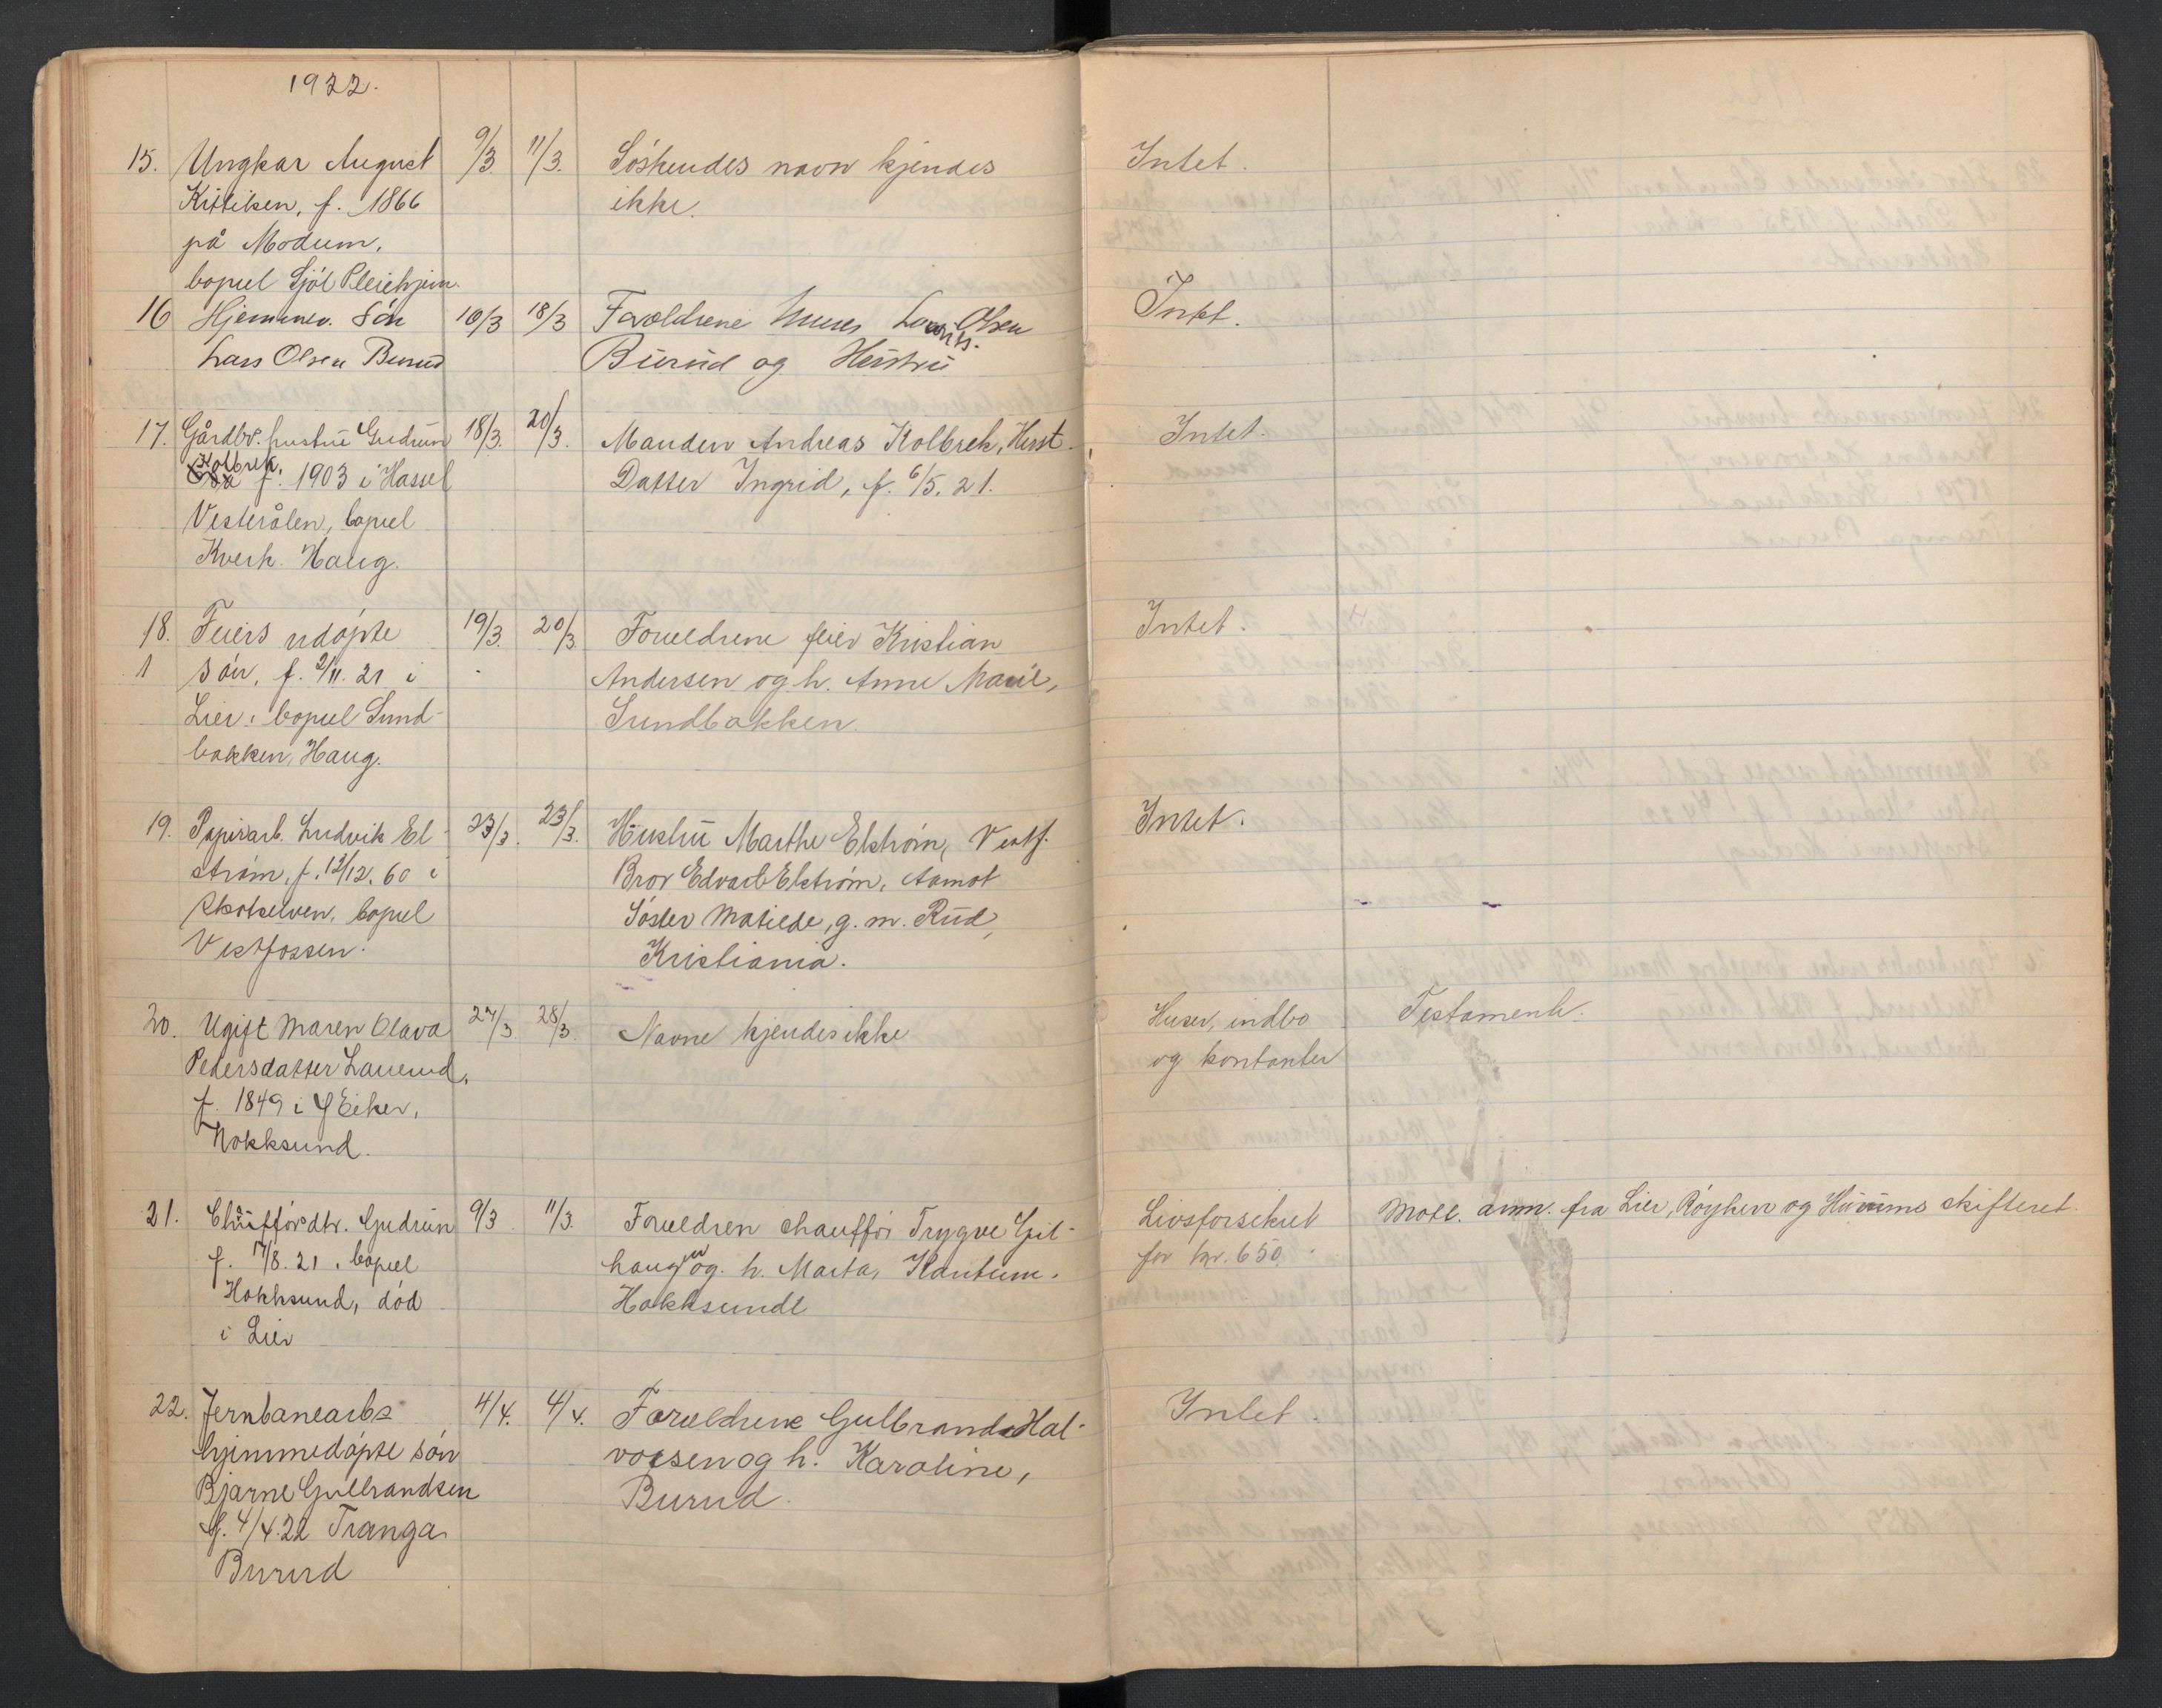 1922.
15. Ungkar August 9/3. 11/3. Søskendes navn kjendes Intet.
Kittilsen, f. 1866 ikke.
på Modum,
bopæl Sjøl Pleiehjem.
16 Hjemmev. Søn 10/3 18/3 Forældrene Laurits Olsen Intet.
Lars Olsen Burud Burud og Hustru
17. Gårdbr. hustru Gudrun 18/3. 20/3. Manden Andreas Kolbrek, Hust. Intet.
Kolbrek, f. 1903 i Hassel Datter Ingrid, f. 6/5. 21.
Vesterålen, bopæl
Kverk. Haug.
18. Feiers udøpte 19/3. 20/3. Forældrene feier Kristian Intet.
1 søn, f. 2/11. 21 i Andersen og h. Anne Marie,
Lier, bopæl Sund- Sundbakken.
bakken, Haug.
19. Papirarb. Ludvik El- 23/3. 23/3. Hustru Marthe Elstrøm, Vestf. Intet.
strøm, f. 13/12. 60 i Bror Edvard Elstrøm, Aamot
Skotselven, bopæl Søster Matilde, g. m. Rud,
Vestfossen. Kristiania.
20. Ugift Maren Olava 24/3 28/3. Navne kjendes ikke Huser, indbo Testament.
Pedersdatter Lauerud, og kontanter
f. 1849 i Ø Eiker,
Hokksund.
21. Chaufførdtr. Gudrun 9/3. 11/3. Forældren chauffør Trygve Gul- Livsforsikret Motl. anm. fra Lier, Røyken og Hurums skifteret.
f. 17/8. 21, bopæl haugen og h. Marta, for kr. 650.
Hokksund, død Hokksund
i Lier
22. Jernbanearbs 4/4. 4/4. Forældrene Gulbrand Hal- Intet.
hjemmedøpte søn vorsen og h. Karoline,
Bjarne Gulbrandsen Burud.
f. 4/4. 22 Tranga
Burud